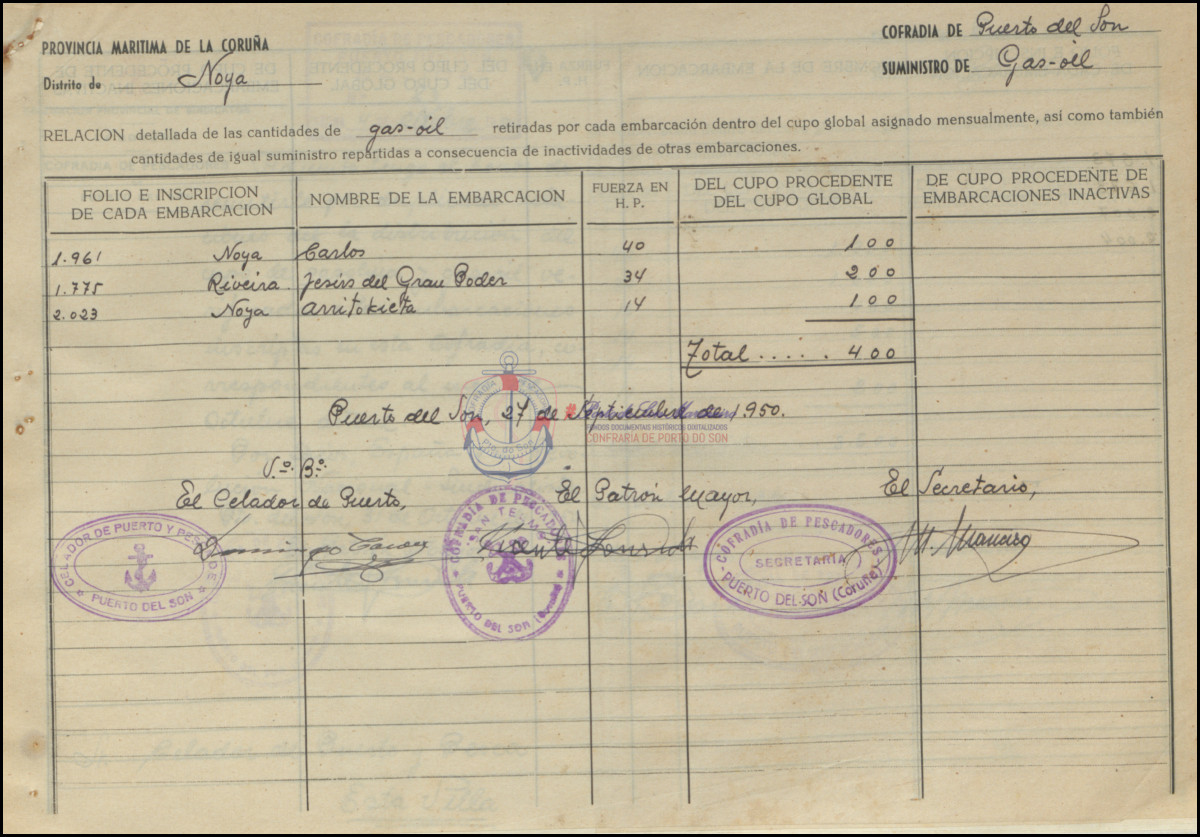 PROVINCIA MARITIMA DE LA CORUÑA
Distrito de Noya
COFRADIA DE Puerto del Son
SUMINISTRO DE Gas-oil
RELACION detallada de las cantidades de gas-oil retiradas por cada embarcación dentro del cupo global asignado mensualmente, así como también
cantidades de igual suministro repartidas a consecuencia de inactividades de otras embarcaciones.
FOLIO E INSCRIPCION DE CADA EMBARCACION
NOMBRE DE LA EMBARCACION
FUERZA EN H. P.
DEL CUPO PROCEDENTE DEL CUPO GLOBAL
DE CUPO PROCEDENTE DE EMBARCACIONES INACTIVAS
1.961 Noya Carlos 40 100
1.775 Riveira Jesús del Gran Poder 34 200
2.023 Noya Arritokieta 14 100
Total ...... 400
Puerto del Son, 27 de Septiembre de 1.950.
FONDOS DOCUMENTAIS HISTÓRICOS DIXITALIZADOS
CONFRARIA DE PORTO DO SON
Pto. do Son
V.º B.º
El Celador de Puerto, El Patrón Mayor, El Secretario,
CELADOR DE PUERTO Y PESCA DE
PUERTO DEL SON
COFRADIA DE PESCADORES
SAN TELMO
PUERTO DEL SON (Coruña)
COFRADÍA DE PESCADORES
SECRETARIA
PUERTO DEL SON (Coruña)